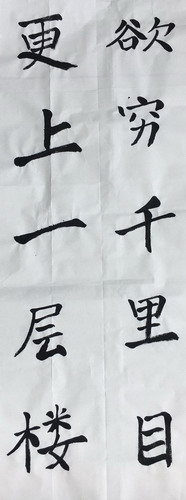 欲穷千里目
更上一层楼